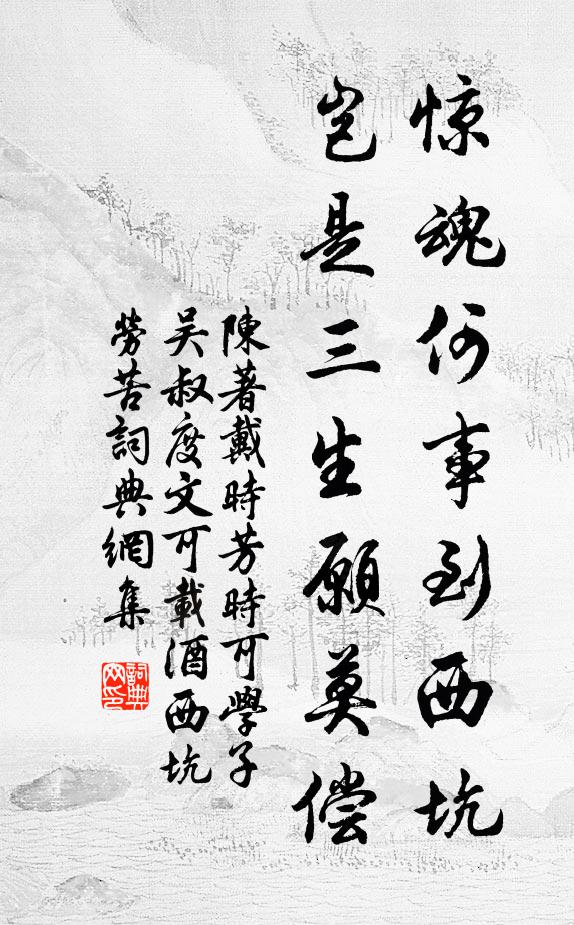 惊魂何事到西坑
岂是三生愿莫偿
陳著戴時芳時可學子
吴叔度文可載酒西坑
勞苦詞典網集
詞典网印